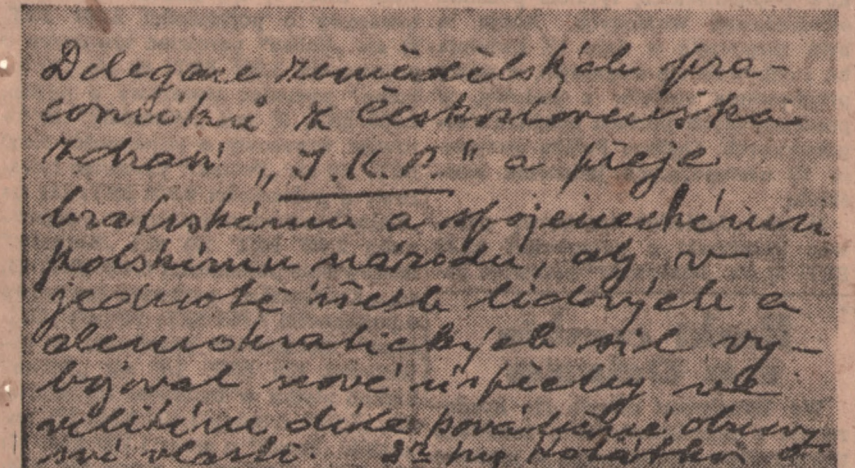 Delegace zemědělských pra-
covníků z Československa
zdraví „I.K.P." a přeje
bratrskému a spojeneckému
polskému národu, aby v
jednotě všech lidových a
demokratických sil vy-
bojoval nové úspěchy ve
velikém díle poválečné obnovy
své vlasti.